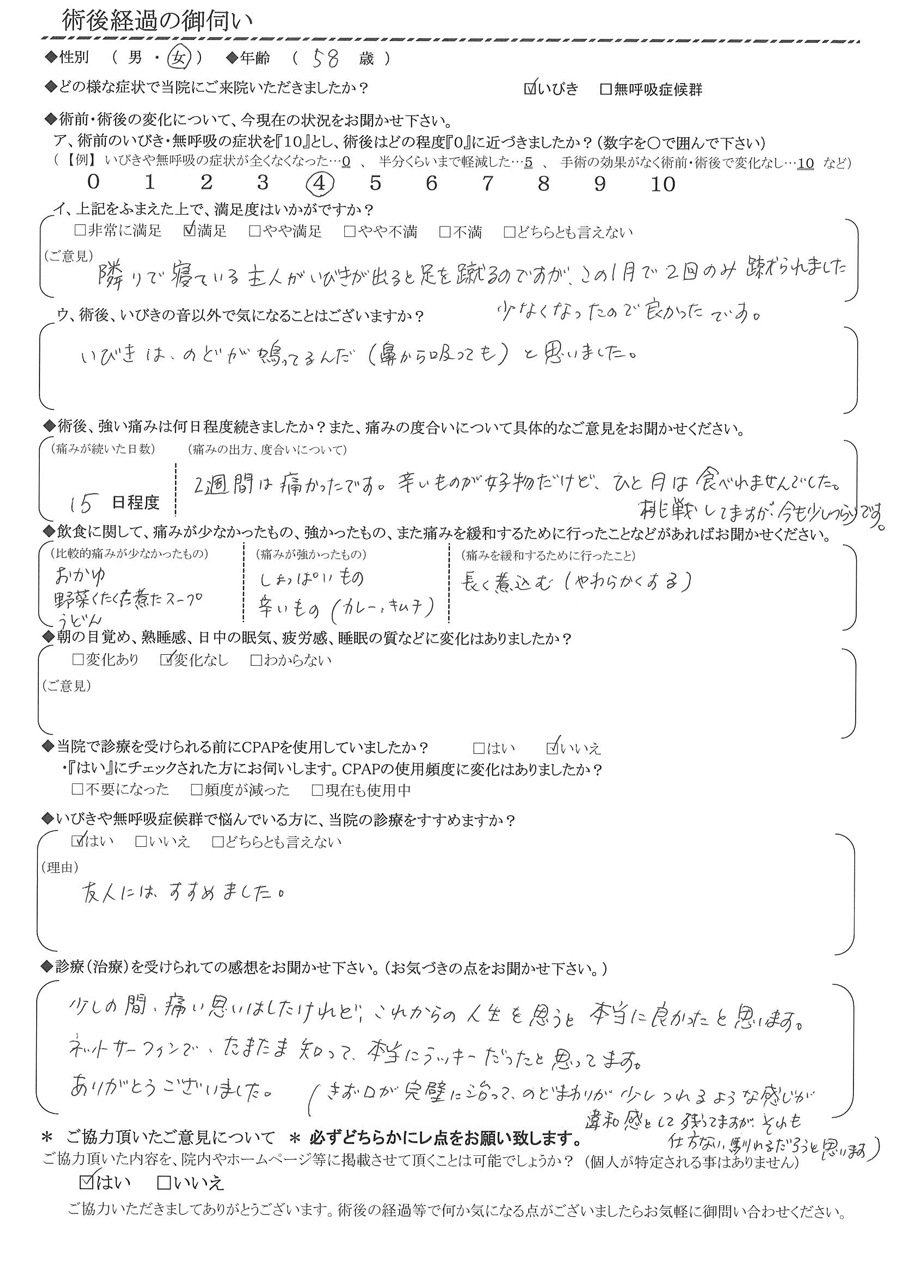 術後経過の御伺い
◆性別 （ 男 ・ 女 ） ◆年齢 （ 58 歳 ）
◆どの様な症状で当院にご来院いただきましたか？ ☑いびき □無呼吸症候群
◆術前・術後の変化について、今現在の状況をお聞かせ下さい。
ア、術前のいびき・無呼吸の症状を『10』とし、術後はどの程度『0』に近づきましたか？（数字を〇で囲んで下さい）
（ 【例】 いびきや無呼吸の症状が全くなくなった…0 、 半分くらいまで軽減した…5 、 手術の効果がなく術前・術後で変化なし…10 など）
0 1 2 3 4 5 6 7 8 9 10
イ、上記をふまえた上で、満足度はいかがですか？
□非常に満足 ☑満足 □やや満足 □やや不満 □不満 □どちらとも言えない
（ご意見）
隣りで寝ている主人がいびきが出ると足を蹴るのですが、この1月で2回のみ蹴られました
少なくなったので良かったです。
ウ、術後、いびきの音以外で気になることはございますか？
いびきは、のどが鳴ってるんだ（鼻から吸っても）と思いました。
◆術後、強い痛みは何日程度続きましたか？また、痛みの度合いについて具体的なご意見をお聞かせください。
（痛みが続いた日数） （痛みの出方、度合いについて）
15 日程度
2週間は痛かったです。辛いものが好物だけど、ひと月は食べれませんでした。
挑戦してますが、今も少しつらいです。
◆飲食に関して、痛みが少なかったもの、強かったもの、また痛みを緩和するために行ったことなどがあればお聞かせください。
（比較的痛みが少なかったもの） （痛みが強かったもの） （痛みを緩和するために行ったこと）
おかゆ
野菜くたくた煮たスープ
うどん
しょっぱいもの
辛いもの（カレー、キムチ）
長く煮込む（やわらかくする）
◆朝の目覚め、熟睡感、日中の眠気、疲労感、睡眠の質などに変化はありましたか？
□変化あり ☑変化なし □わからない
（ご意見）
◆当院で診療を受けられる前にCPAPを使用していましたか？ □はい ☑いいえ
・『はい』にチェックされた方にお伺いします。CPAPの使用頻度に変化はありましたか？
□不要になった □頻度が減った □現在も使用中
◆いびきや無呼吸症候群で悩んでいる方に、当院の診療をすすめますか？
☑はい □いいえ □どちらとも言えない
（理由）
友人には、すすめました。
◆診療（治療）を受けられての感想をお聞かせ下さい。（お気づきの点をお聞かせ下さい。）
少しの間、痛い思いはしたけれど、これからの人生を思うと本当に良かったと思います。
ネットサーフィンで、たまたま知って、本当にラッキーだったと思ってます。
ありがとうございました。 （きず口が完璧に治って、のどまわりが少しつれるような感じが
違和感として残ってますが、それも
仕方ない、馴れるだろうと思います）
＊ ご協力頂いたご意見について ＊ 必ずどちらかにレ点をお願い致します。
ご協力頂いた内容を、院内やホームページ等に掲載させて頂くことは可能でしょうか？（個人が特定される事はありません）
☑はい □いいえ
ご協力いただきましてありがとうございます。術後の経過等で何か気になる点がございましたらお気軽に御問い合わせください。